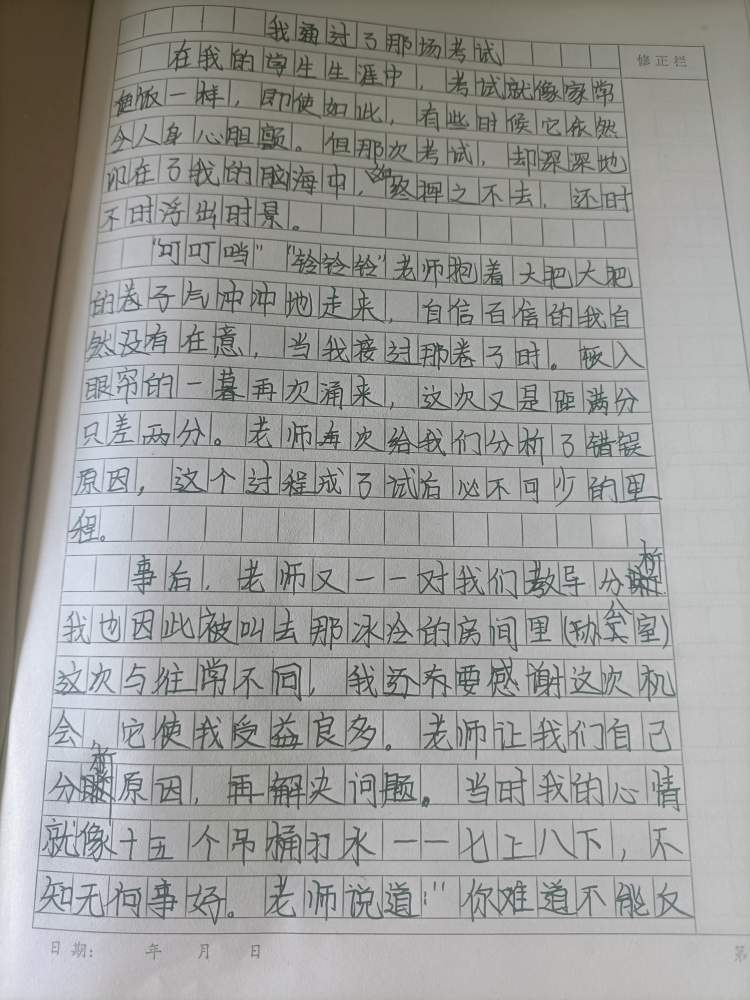 我通过了那场考试
修正栏
在我的学生生涯中，考试就像家常
便饭一样，即使如此，有些时候它依然
令人身心胆颤。但那次考试，却深深地
印在了我的脑海中，始终挥之不去，还时
不时浮出时景。
"叮叮当""铃铃铃"老师抱着大肥大肥
的卷子气冲冲地走来，自信百倍的我自
然没有在意，当我接过那卷子时。板入
眼帘的一幕再次涌来，这次又是距满分
只差两分。老师再次给我们分析了错误
原因，这个过程成了试后必不可少的里
程。
事后，老师又一一对我们教导分析
我也因此被叫去那冰冷的房间里(办公室)
这次与往常不同，我还有要感谢这次机
会 它使我受益良多。老师让我们自己
分析原因，再解决问题。当时我的心情
就像十五个吊桶打水一一七上八下，不
知无何事好。老师说道："你难道不能反
日期： 年 月 日
第